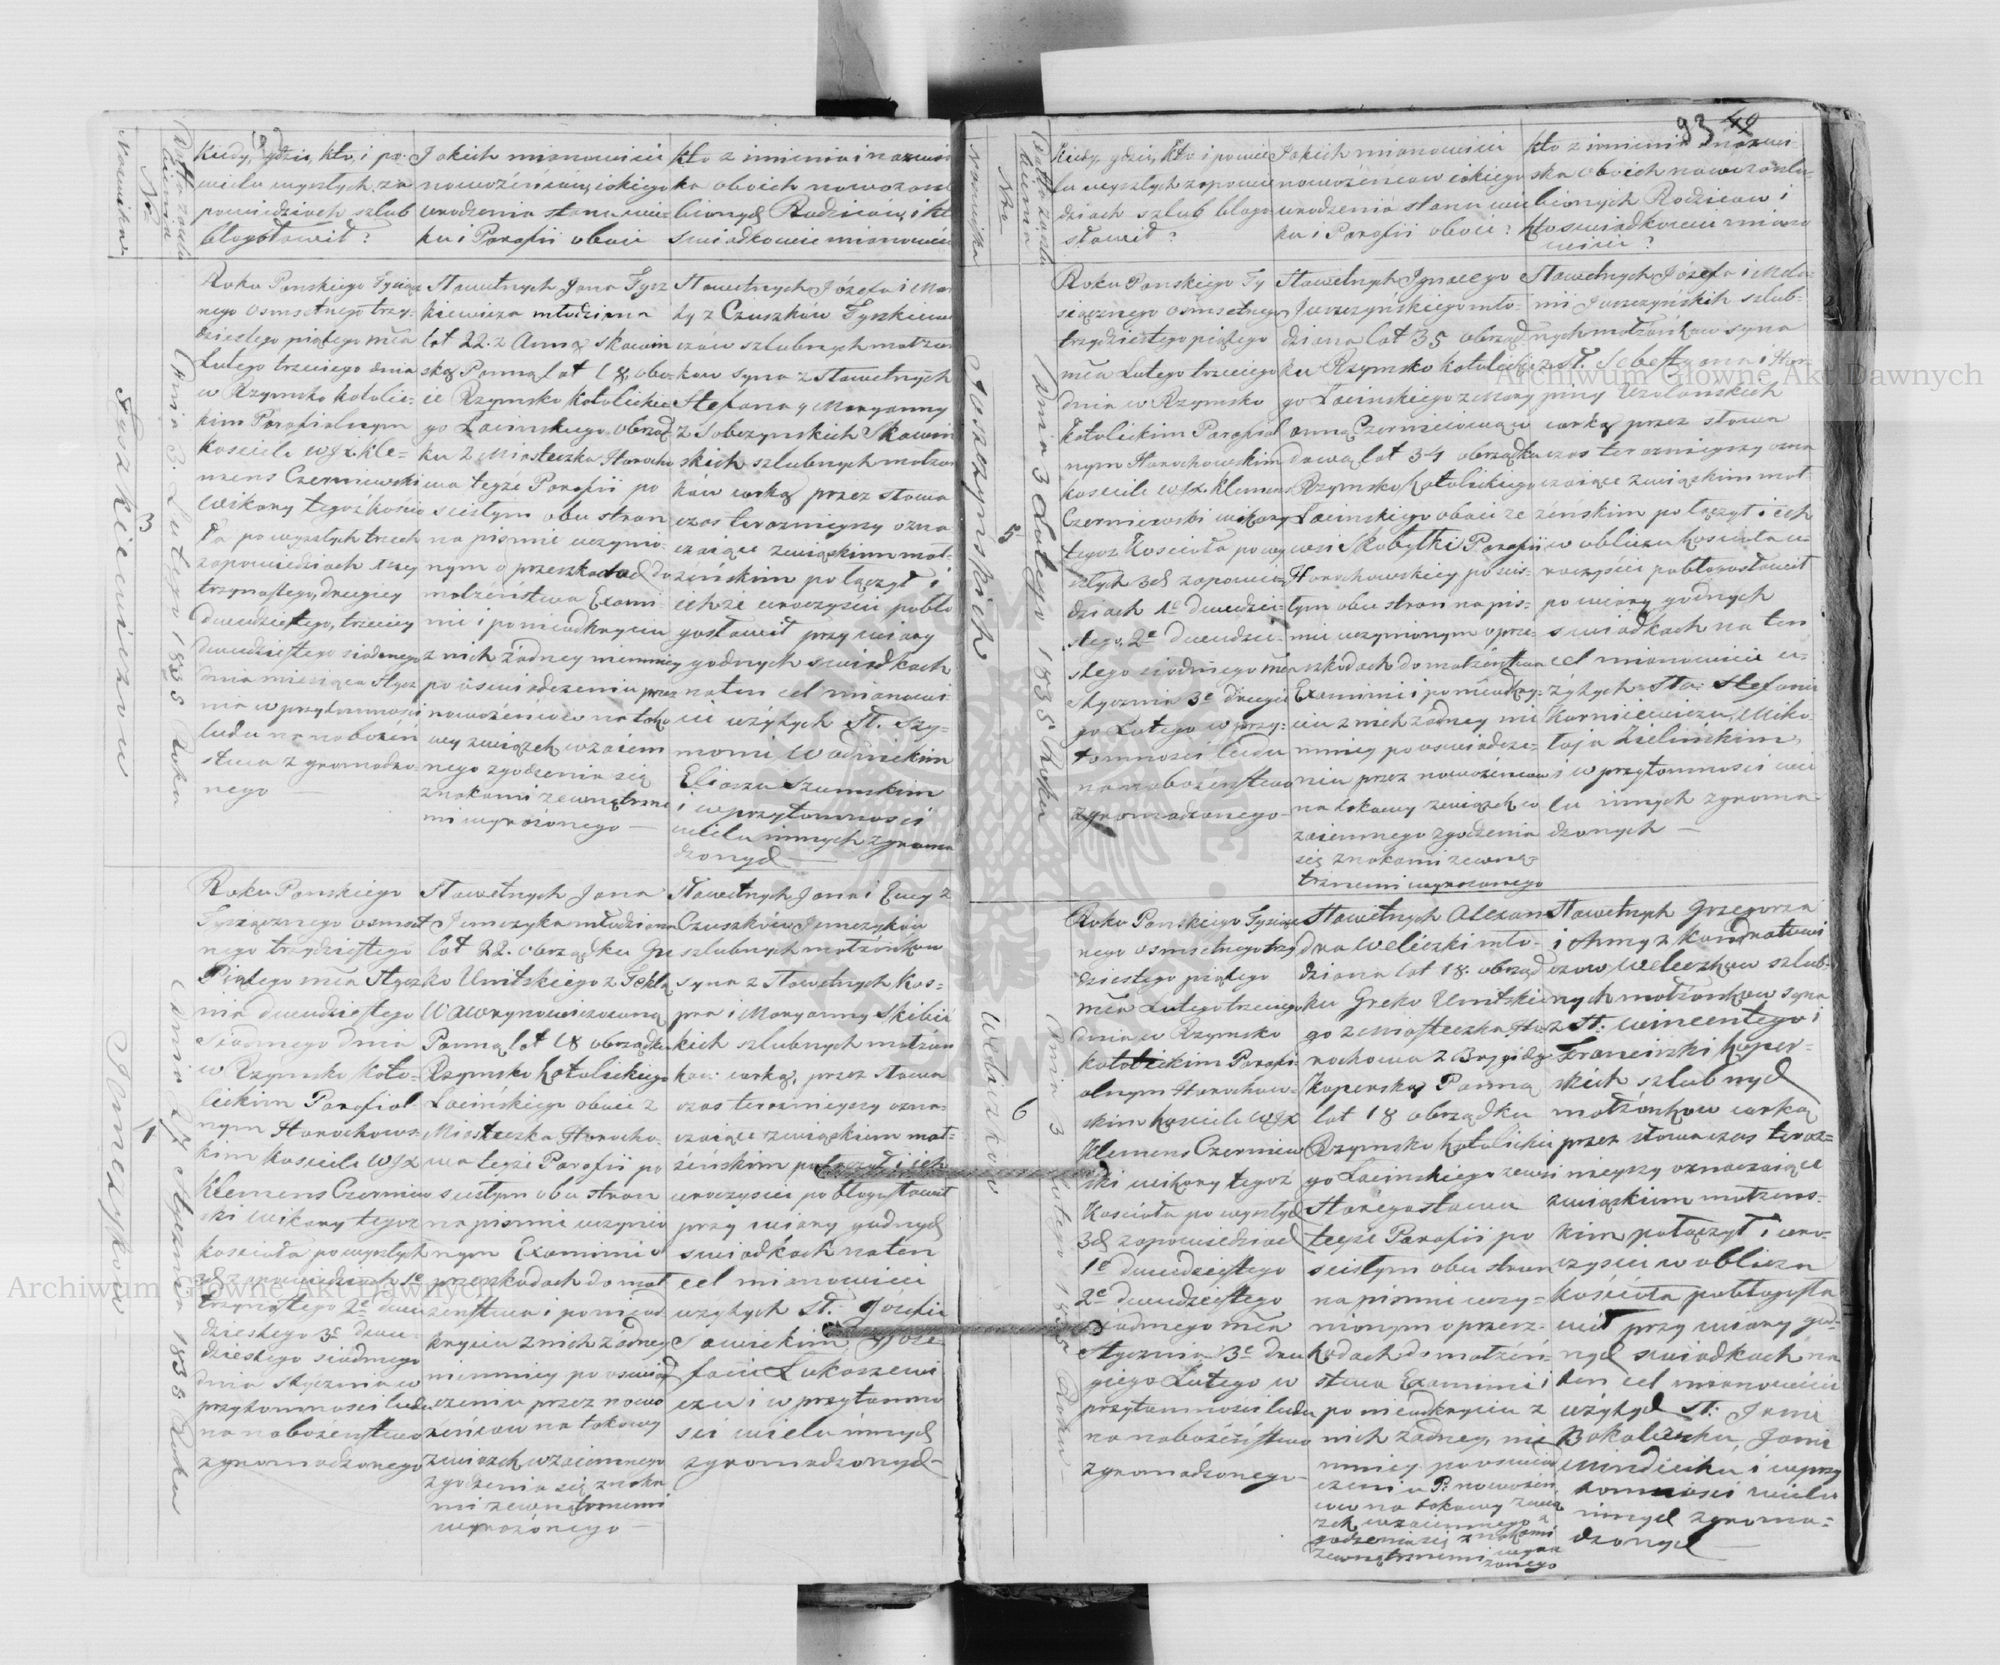 93 42
Nazwiska
Nro
Datta zawar
cia
Kiedy, gdzie, kto, i po
wielu wyszłych, za
powiedziach szlub
błogosławił?
Jakich mianowicie
nowożeńców, iakiego
urodzenia stanu wie-
ku i Parafii oboie
kto z imienia i nazwis
ka oboich nowozaszl
bionych Rodziców, i kto
świadkowie mianowicie
Tyszkiewiczów
3
Dnia 3. Lutego 1835 Roku
Roku Panskiego Tysiącz
nego osmsetnego trzy-
dziestego piątego mca
Lutego trzeciego dnia
w Rzymsko katolic-
kim Parafialnym
kosciele WJX Kle-
mens Czerniewski
wikary tegoż kościo
ła po wyszłych trzech
zapowiedziach 1szey
trzynastego, drugiey
dwudziestego, trzeciey
dwudziestego siódmego
dnia miesiąca Stycz
nia w przytomności
ludu na nabożeń
stwo zgromadzo
nego —
Sławetnych Jana Tysz
kiewicza młodziana
lat 22. z Anną Skawin
ską Panną lat 18, obo-
ie Rzymsko katolickie
go Łacinskiego obrząd
ku z Miasteczka Horocho
wa teyże Parafii po
scisłym obu stron
na pismie uczynio
nym o przeszkodach do
małżeństwa Exami
nie i po nieodkryciu
z nich żadney niemniey
po oświadczeniu przez
nowożeńców na tako
wy związek wzaiem
nego zgodzenia się
znakami zewnętrzne
mi wyrażonego —
Sławetnych Józefa i Mar
ty z Czuszków Tyszkiewi
czów szlubnych małżon
ków syna z Sławetnych
Stefana y Maryanny
z Sobczynskich Skawin
skich szlubnych małżon
ków corką przez słowa
czas teraznieyszy ozna
czaiące związkiem mał-
żeńskim połączył i
ichże uroczyście pobło
gosławił przy wiary
godnych swiadkach
na ten cel mianowi
cie użytych St. Szy-
monie Wodnickim
Eliaszu Szumskim
i w przytomności
wielu innych zgroma
dzonych —
Jemczyków
4
Dnia 27 Stycznia 1835 Roku
Roku Panskiego
Tysiącznego osmset
nego trzydziestego
Piątego mca Stycz
nia dwudziestego
siodmego dnia
w Rzymsko kato-
lickim Parafial-
nym Horochows-
kim kosciele WJX
Klemens Czerniew
ski wikary tegoż
koscioła po wyszłych
3ch zapowiedziach 1e
trzynastego 2e dwu
dziestego 3e dwu-
dziestego siódmego
dnia Stycznia w
przytomności ludu
na nabożeństwo
zgromadzonego
Sławetnych Jana
Jemczyka młodziana
lat 22. obrządku Gre
ko Unitskiego z Teklą
Wawrynowiczowną
Panną lat 18 obrządku
Rzymsko katolickiego
Łacińskiego oboie z
Miasteczka Horocho-
wa teyże Parafii po
scisłym obu stron
na pismie uczynio
nym Examinie o
przeszkodach do mał
żenstwa i po nieod
kryciu z nich żadney
niemniey po oswiad
czeniu przez nowo
żeńców na takowy
związek wzaiemnego
zgodzenia się znaka
mi zewnętrznemi
wyrażonego —
Sławetnych Jana i Ewy z
Czuszków Jemczyków
szlubnych małżonków
syna z Sławetnych Kas-
pra i Maryanny Skibic
kich szlubnych małżon
ków corką, przez słowa
czas teraznieyszy ozna-
czaiące związkiem mał-
żeńskim połączył i ich
uroczyscie pobłogosławił
przy wiary godnych
swiadkach na ten
cel mianowicie
użytych St. Józefie
Sawickim, Joze
facie Łukaszewi
czu i w przytomno
ści wielu innych
zgromadzonych —
Nazwiska
Nro
Datta zawar
cia
Kiedy, gdzie, kto i po wie
lu wyszłych zapowie
dziach szlub błogo
sławił?
Jakich mianowicie
nowożeńców iakiego
urodzenia stanu wie
ku i Parafii oboie?
kto z imienia i nazwi-
ska oboich nowozaszlu-
bionych Rodziców i
kto swiadkowie miano
wicie?
Juszczynskich
5
Dnia 3 Lutego 1835 Roku
Roku Panskiego Ty
siącznego osmsetnego
trzydziestego piątego
mca Lutego trzeciego
dnia w Rzymsko
katolickim Parafial
nym Horochowskim
kosciele WJX. Klemens
Czerniewski wikary
tegoż Kościoła po wy
szłych 3ch zapowie
dziach 1e dwudzie-
stego, 2e dwudzie-
stego siódmego mca
Stycznia 3e drugie
go Lutego w przy-
tomności ludu
na nabożeństwo
zgromadzonego
Sławetnych Ignacego
Juszczyńskiego mło-
dziana lat 35 obrząd
ku Rzymsko katolickie
go Łacinskiego z Mary
anną Czerniewiczow
dową lat 34 obrządku
Rzymsko katolickiego
Łacinskiego oboie ze
wsi Skobyłki Parafii
Horochowskiey po scis-
łym obu stron na pis-
mie uczynionym o prze-
szkodach do małżeństwa
Examinie i po nieodkry-
ciu z nich żadney nie
mniey po oswiadcze-
niu przez nowożeńców
na takowy związek w
zaiemnego zgodzenia
się znakami zewnę-
trznemi wyrażonego
Sławetnych Józefa i Mela-
nii Juszczynskich szlub-
nych małżonków syna
z St. Sebestyana i Hor
pyny Uzolanskich
corką przez słowa
czas teraznieyszy ozna
czaiące związkiem mał-
żeńskim połączył i ich
w obliczu kościoła u-
roczyscie pobłogosławił
po wiary godnych
swiadkach na ten
cel mianowicie u-
żytych Sła: Stefanie
Korniewiczu, Miko-
łaju Zielinskim,
i w przytomności wie
lu innych zgroma
dzonych —
Weliczków
6
Dnia 3 Lutego 1835 Roku
Roku Panskiego Tysiącz
nego osmsetnego trzy
dziestego piątego
mca Lutego trzeciego
dnia w Rzymsko
katolickim Parafi
alnym Horochow-
skim kosciele WJX
Klemens Czerniew
ski wikary tegoż
Kosciola po wyszłych
3ch zapowiedziach
1e dwudziestego
2e dwudziestego
siodmego mca
Stycznia 3e dru
giego Lutego w
przytomności ludu
na nabożeństwo
zgromadzonego —
Sławetnych Alexan
dra Weliczki mło-
dziana lat 18. obrząd
ku Greko Unitskie
go z Miasteczka Ho-
rochowa z Brygidą
Koperską Panną
lat 18 obrządku
Rzymsko katolickie
go Łacinskiego ze wsi
Staregostawu
teyże Parafii po
scisłym obu stron
na pismie uczy-
nionym o przesz-
kodach do małżeń-
stwa Examinie i
po nieodkryciu z
nich żadney, nie
mniey po oswiad
czeniu P. nowożeń
ców na takowy zwią
zek wzaiemnego z
godzenia się znakami
zewnętrznemi wyra
żonego
Sławetnych Grzegorza
i Anny z Kondratowi
czow Weliczków szlub-
nych małżonków syna
z St: Wincentego i
Franciszki Koper-
skich szlubnych
małżonków corką
przez słowa czas teraz-
nieyszy oznaczaiące
związkiem małżens-
kim połączył i uro-
czyscie w obliczu
kościoła pobłogosła
wił przy wiary god-
nych swiadkach na
ten cel mianowicie
użytych St: Janie
Bokaleyku, Janie
Mudreyku i w przy
tomnosci wielu
innych zgroma-
dzonych —
Archiwum Główne Akt Dawnych
Archiwum Główne Akt Dawnych